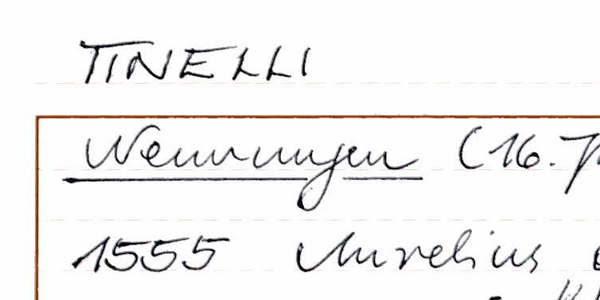 TINELLI
Wemmingen (16.
1555 Aurelius